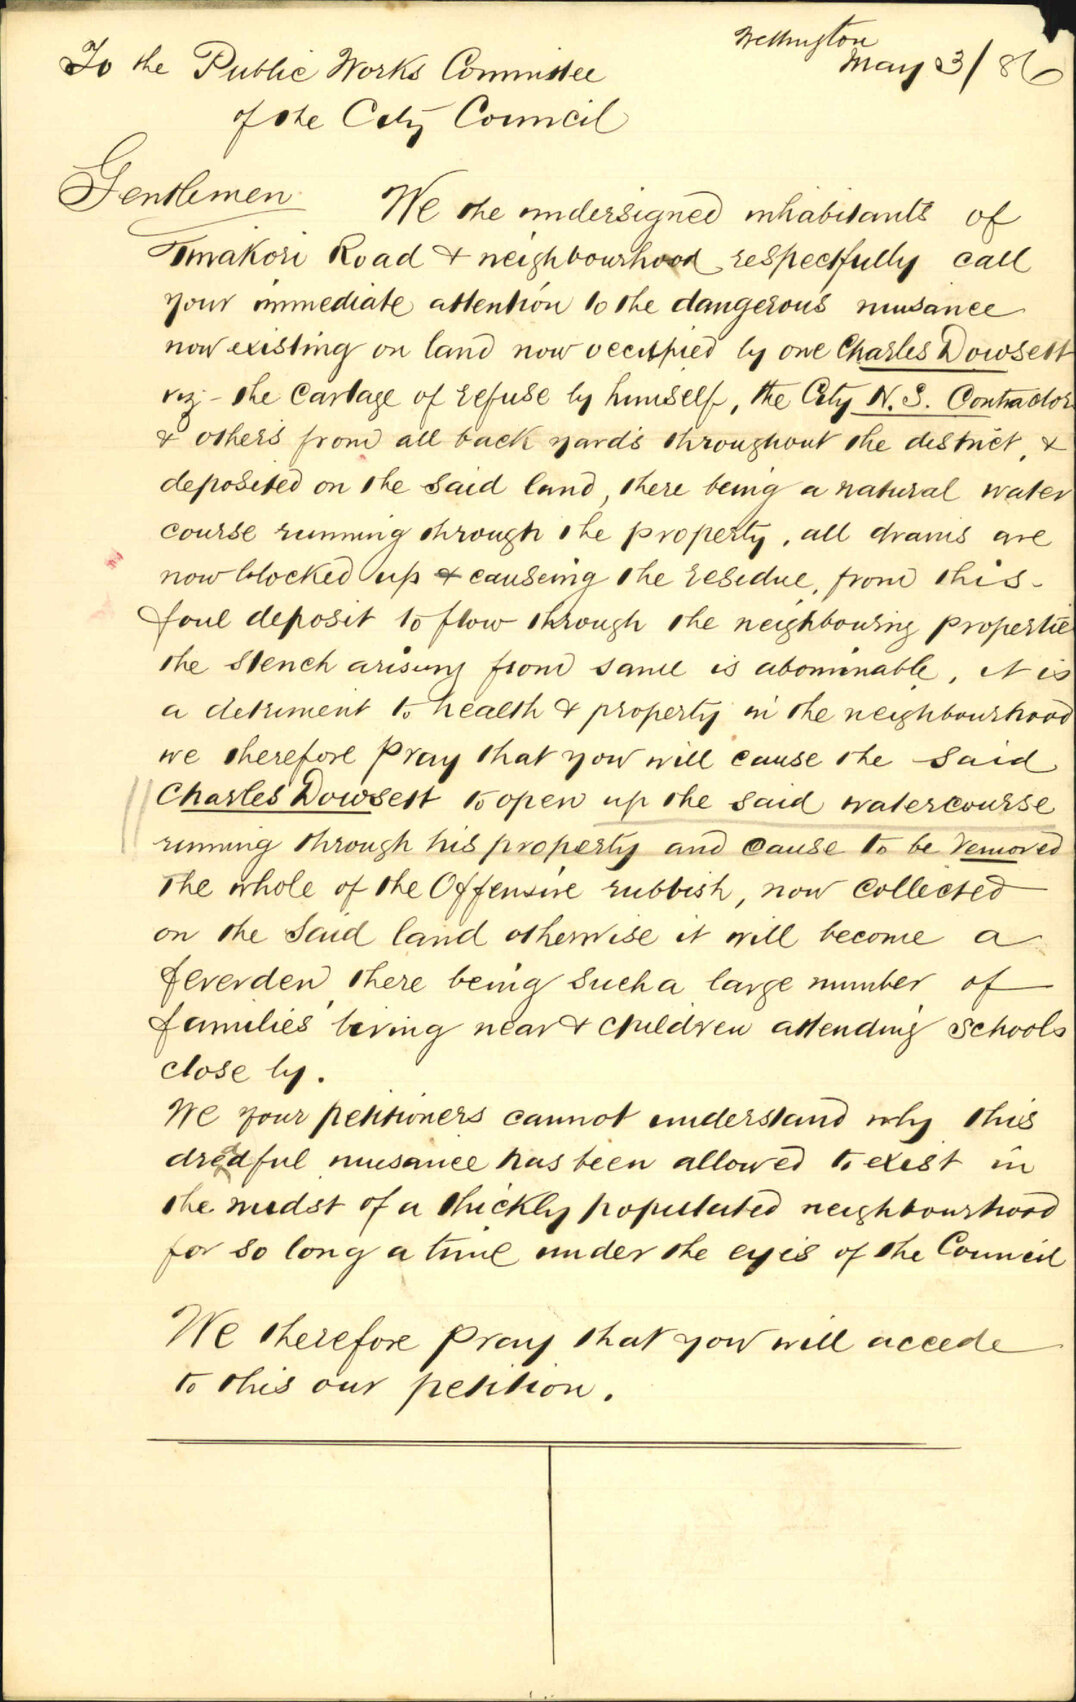 Wellington
May 3/86
To the Public Works Committee
of the City Council
Gentlemen We the undersigned inhabitants of
Tinakori Road & neighbourhood respectfully call
your immediate attention to the dangerous nuisance
now existing on land now occupied by one Charles Dowsett
viz - the Cartage of refuse by himself, the City N. S. Contractor
& others from all back yards throughout the district, &
deposited on the said land, there being a natural water
course running through the property, all drains are
now blocked up & causeing the residue, from this
foul deposit to flow through the neighbouring propertie
the stench arising from same is abominable, it is
a detriment to health & property in the neighbourhood
we therefore Pray that you will cause the said
Charles Dowsett to open up the said watercourse
running through his property and cause to be removed
the whole of the Offensive rubbish, now collected
on the said land otherwise it will become a
feverden there being such a large number of
families living near & children attending schools
close by.
We your petitioners cannot understand why this
dreadful nusance has been allowed to exist in
the midst of a thickly populated neighbourhood
for so long a time under the eyes of the Council
We therefore pray that you will accede
to this our petition.